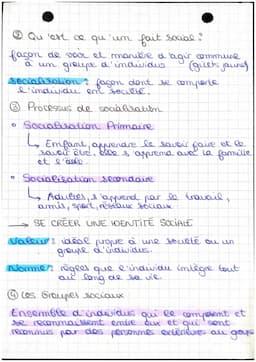 ② Qu'est ce qu'un fait social?
façon de voir et manière d'agir commune
à un groupe d'individus (gilets jaunes)
Socialisation : façon dont se comporte
l'individu en société.
③ Processus de socialisation
• Socialisation Primaire
↳ Enfant, apprendre le savoir faire et le
savoir être, elle s'apprend avec la famille
et l'école.
• Socialisation secondaire
↳ Adultes, s'apprend par le travail,
amis, sport, réseaux sociaux
→ SE CRÉER UNE IDENTITÉ SOCIALE
Valeur : idéal propre à une société ou un
groupe d'individus.
Norme : règles que l'individu intègre tout
au long de sa vie.
④ Les Groupes sociaux
Ensemble d'individus qui le composent et
se reconnaissent entre eux et qui sont
reconnus par des personnes extérieures au groupe